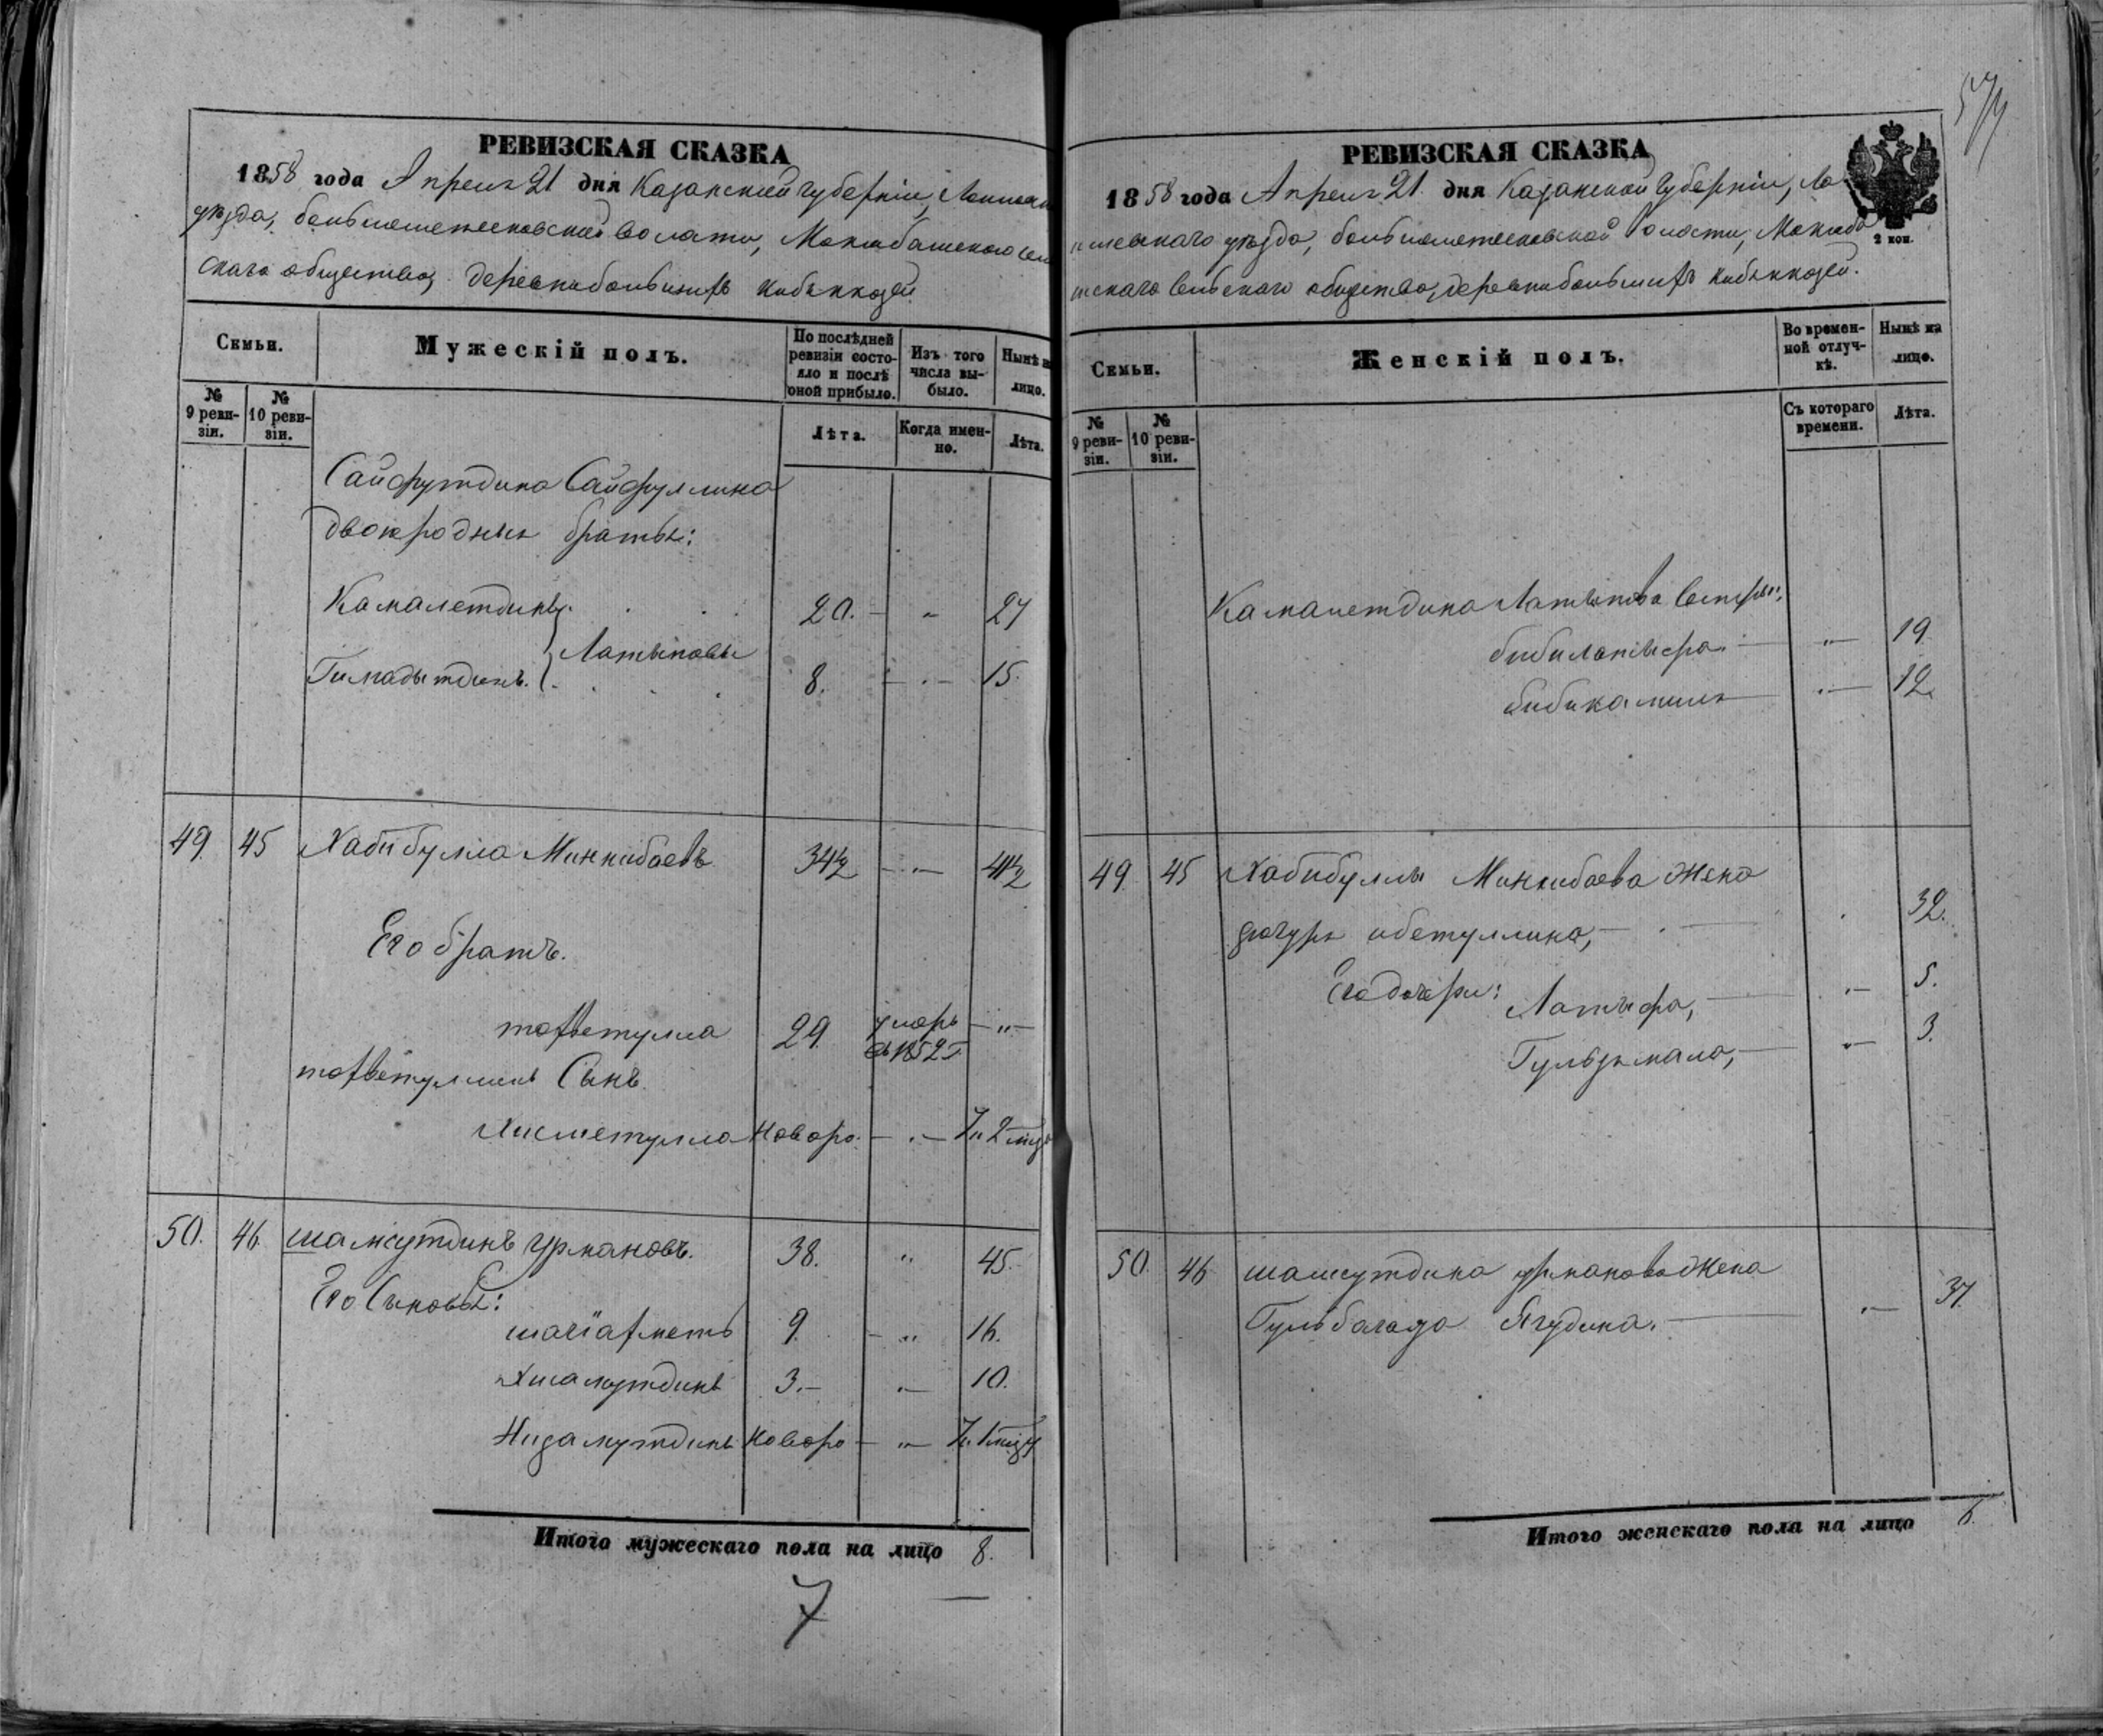 РЕВИЗСКАЯ СКАЗКА
1858 года Апреля 21 дня Казанской Губерніи,
уѣзда, большеметесковской волости,
скаго общества, деревни большихъ кибякозей
Семьи.
Мужескій полъ.
По послѣдней ревизіи состояло и послѣ оной прибыло.
Изъ того числа выбыло.
Нынѣ на лицо.
№ 9 ревизіи.
№ 10 ревизіи.
Лѣта.
Когда именно.
Лѣта.
Сайфутдина Сайфуллина
двоюродныя братья:
Камалетдинъ 20. 27
Латыповы
Гимадытдинъ. 8. 15.
49. 45 Хабибулла Минкибаевъ 34½ 41½
Его братъ.
тофьетулла 29 умеръ
въ 1852 г.
тофьетуллинъ Сынъ.
Хисметулла Новоро. 7. 2 мѣс
50. 46. шамсутдинъ Урмановъ. 38. 45.
Его Сыновья:
шагіахметъ 9. 16.
Хисамутдинъ 3. 10.
Низамутдинъ Новоро 7.
Итого мужескаго пола на лицо 8.
7
57
РЕВИЗСКАЯ СКАЗКА
1858 года Апреля 21 дня Казанской Губерніи, Ла
ишевскаго уѣзда, большеметесковской волости,
шскаго Сельскаго общества, деревни большихъ кибякозей.
2 коп.
Семьи.
Женскій полъ.
Во временной отлучкѣ.
Нынѣ на лицо.
№ 9 ревизіи.
№ 10 ревизіи.
Съ котораго времени.
Лѣта.
Камалетдина Латыпова Сестры,
19.
бибикамиля 12.
49. 45 Хабибуллы Минкибаева Жена
32.
Его дочери: Латыфа, 5.
3.
50. 46 шамсутдина урманова Жена
Гульбагида Ягудина. 37.
Итого женскаго пола на лицо 6.